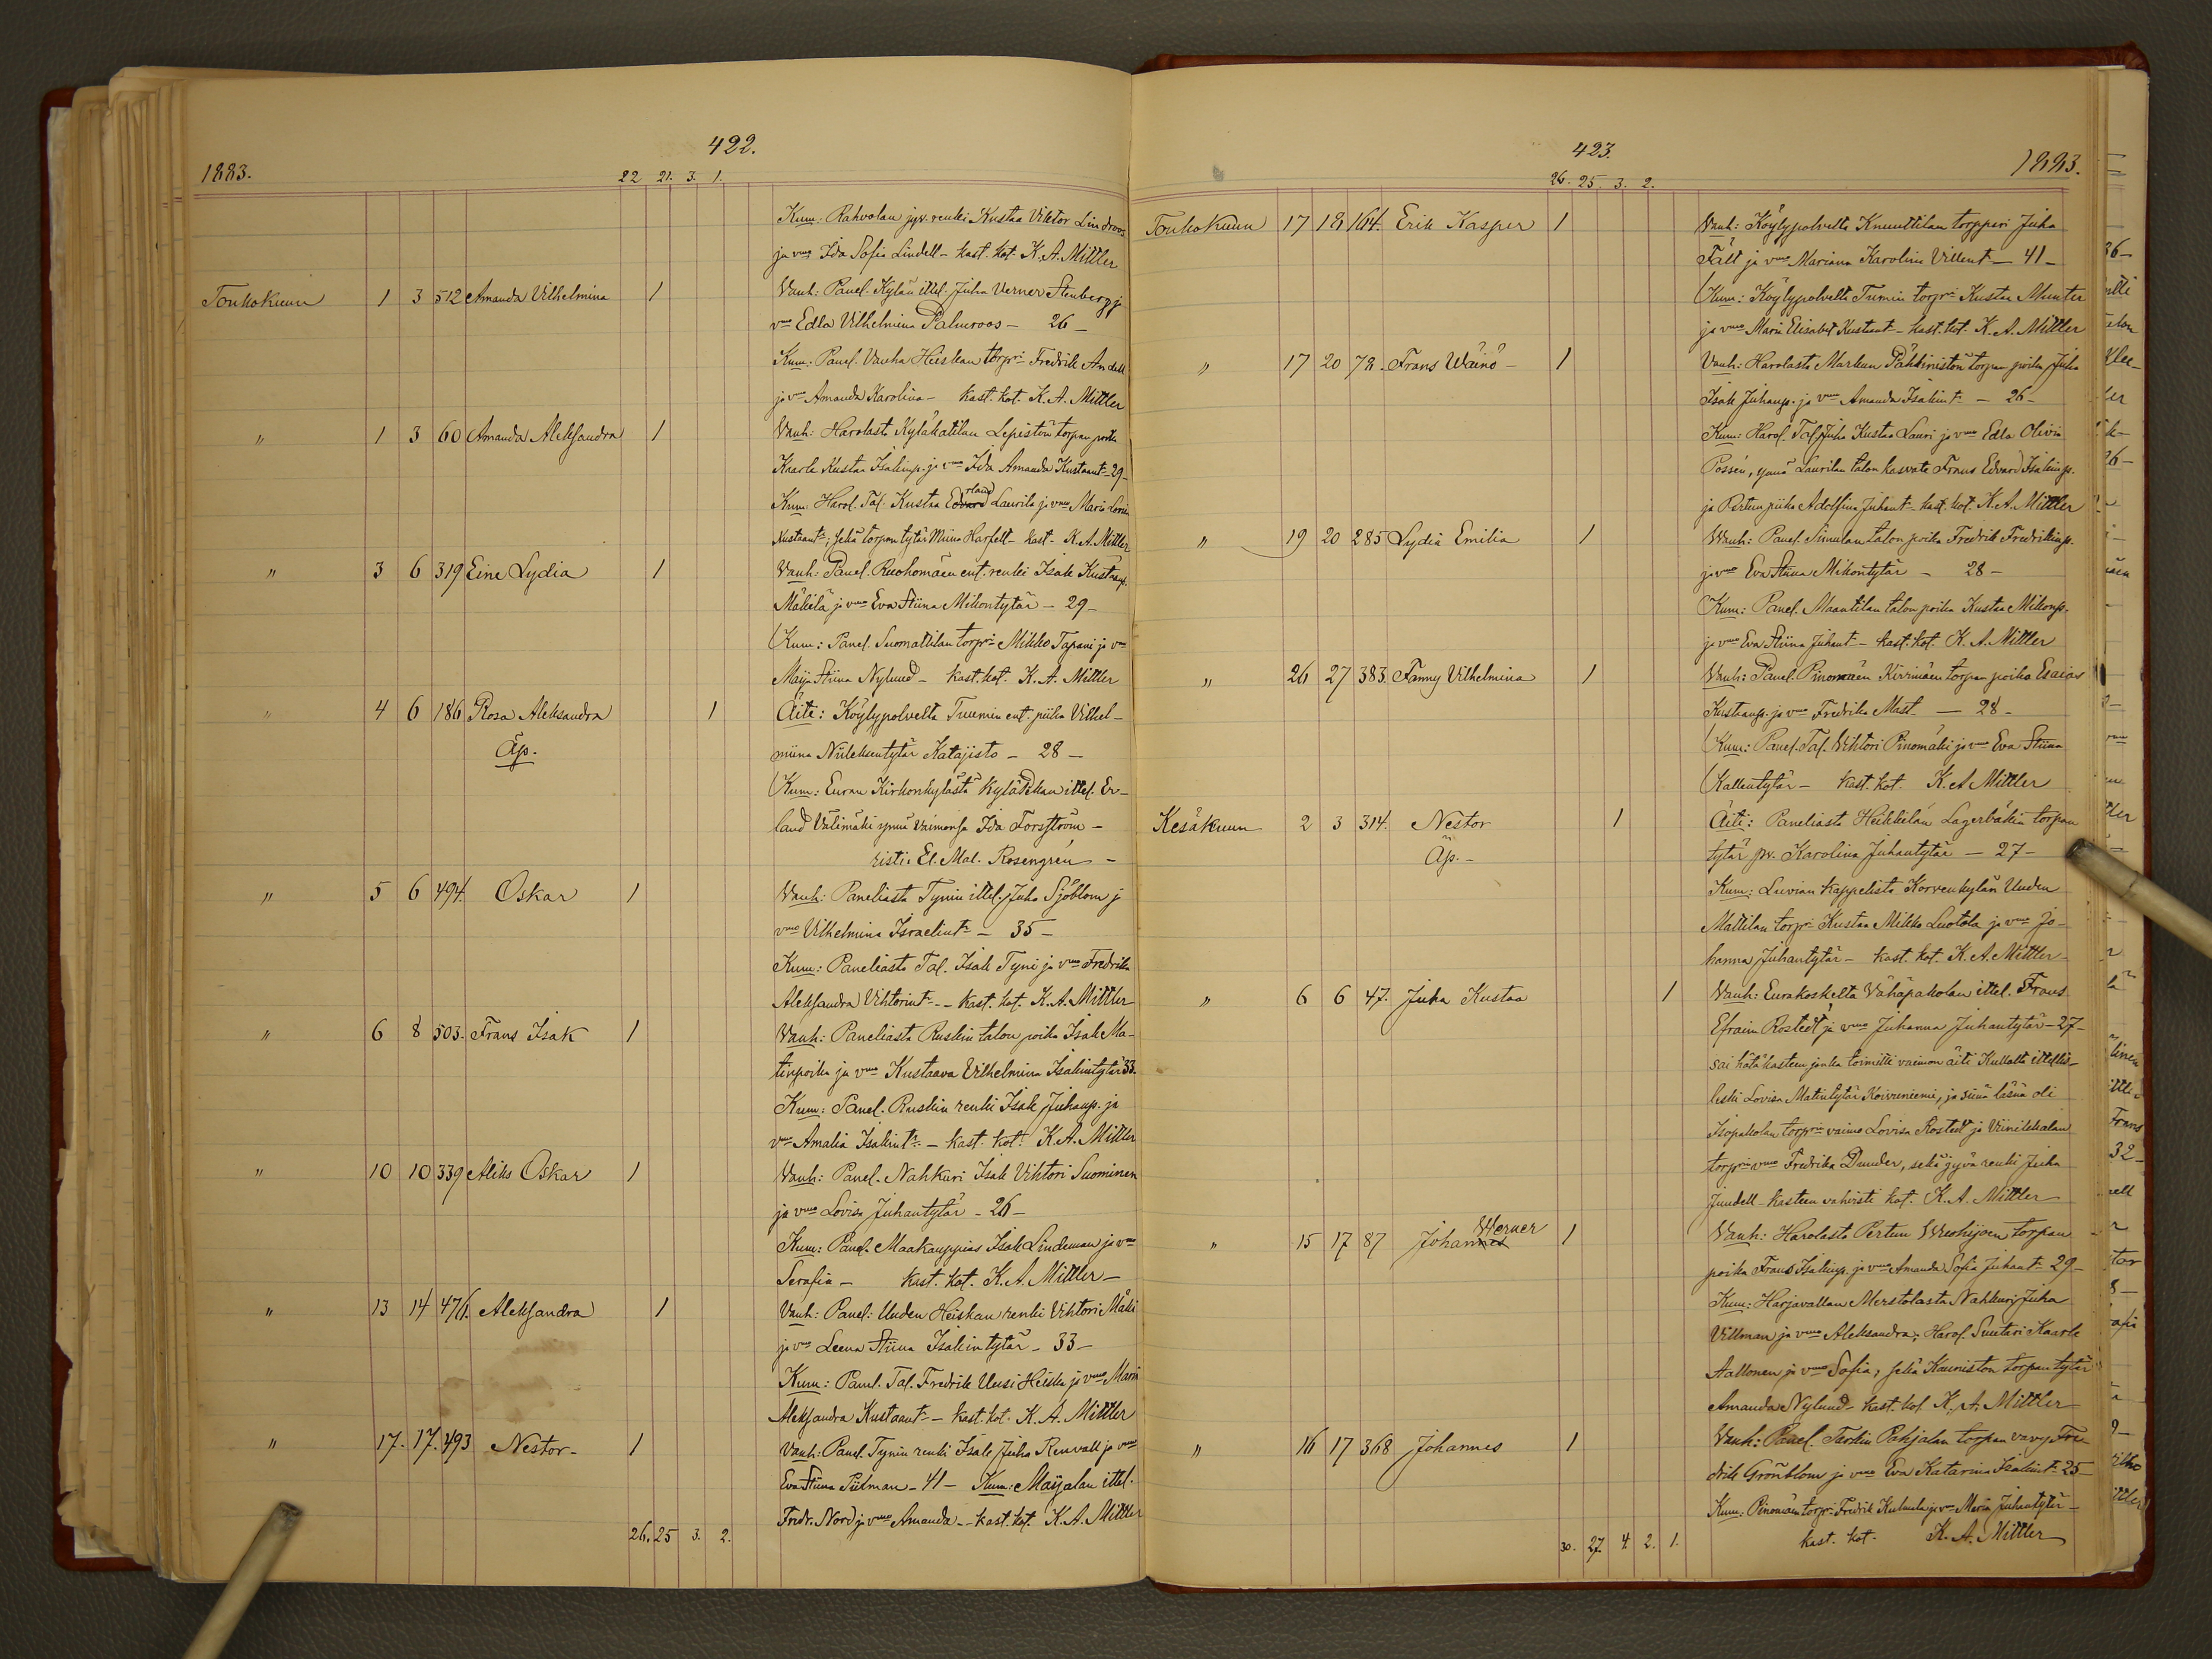 422.
1883.
22 21. 3. 1.
Kum: Rahvolan jyv. renki Kustaa Viktor Lindroos
ja vmo Ida Sofia Lindell - kast. kot. K. A. Mittler
Toukokuun 1 3 512 Amanda Vilhelmina 1 Vanh: Panel. Kylän ittel. Juha Verner Stenberg ja
vmo Edla Vilhelmina Palmroos - 26 -
Kum: Panel. Vanha Heiskan torpri Fredrik Andell
ja vmo Amanda Karolina - kast. kot. K. A. Mittler
" 1 3 60 Amanda Aleksandra 1 Vanh: Harolasta Kyläkatilan Lepistön torpan poika
Kaarle Kustaa Isakinp. ja vmo Ida Amanda Kustaant. 29 -
Kum: Harol. Tal. Kustaa Edvard rland Laurila ja vmo Maria Lovisa
Kustaantr; sekä torpan tytär Miina Harfelt - kast. K. A. Mittler
" 3 6 319 Eine Lydia 1 Vanh: Panel. Ruohomäen ent. renki Isak Kustaap.
Mäkilä ja vmo Eva Stiina Mikontytär - 29 -
Kum: Panel. Suomattilan torpri Mikko Tapani ja vmo
Maija Stiina Nylund - kast. kot. K. A. Mittler
" 4 6 186 Rosa Aleksandra 1 Äiti: Köylypolvelta Tuumin ent. piika Vilhel-
Äp. miina Niileksentytär Katajisto - 28 -
Kum: Euran Kirkonkylästä Kylä Pekan ittel. Er-
land Välimäki ynnä vaimonsa Ida Forsström -
risti. El. Mal. Rosengrén -
" 5 6 494. Oskar 1 Vanh: Paneliasta Tynin ittel. Juha Sjöblom ja
vmo Vilhelmina Israelintr - 35 -
Kum: Paneliasta Tal. Isak Tyni ja vmo Fredrika
Aleksandra Vihtorintr - kast. kot. K. A. Mittler
" 6 8 503. Frans Isak 1 Vanh: Paneliasta Ruskin talon poika Isak Ma-
tinpoika ja vmo Kustaava Vilhelmina Isakintytär 33.
Kum: Panel. Ruskin renki Isak Juhanp. ja
vmo Amalia Isakintr. - kast. kot. K. A. Mittler
" 10 10 339 Aliks Oskar 1 Vanh: Panel. Nahkuri Isak Vihtori Suominen
ja vmo Lovisa Juhantytär - 26 -
Kum: Panel. Maakauppias Isak Lindeman ja vmo
Serafia - kast. kot. K. A. Mittler -
" 13 14 476. Aleksandra 1 Vanh: Panel: Uuden Heiskan renki Vihtori Mäki
ja vmo Leena Stiina Isakintytär - 33 -
Kum: Panel. Tal. Fredrik Uusi Heiska ja vmo Maria
Aleksandra Kustaantr - kast. kot. K. A. Mittler
" 17. 17. 493 Nestor - 1 Vanh: Panel. Tynin renki Isak Juha Renvall ja vmo
Eva Stiina Piilman - 41 - Kum: Maijalan ittel.
Fredr. Nord ja vmo Amanda - kast. kot. K. A. Mittler
26. 25 3. 2.
423.
1883.
26. 25. 3. 2.
Toukokuun 17 18 164. Erik Kasper 1 Vanh: Köylypolvelta Knuuttilan torppari Juha
Fält ja vmo Mariana Karolina Villent - 41 -
Kum: Köylypolvelta Tumin torpri Kustaa Munter
ja vmo Maria Elisabet Kustaat - kast. kot. K. A. Mittler
" 17 20 78. Frans Wäinö - 1 Vanh: Harolasta Markun Pähkinistön torpan poika Juha
Isak Juhanp. ja vmo Amanda Isakintr - 26 -
Kum: Harol. Tal. Juha Kustaa Lauri ja vmo Edla Olivia
Possén, ynnä Laurilan talon kasvate Frans Edvard Isakinp.
ja Pertun piika Adolfina Juhant - kast. kot. K. A. Mittler
" 19 20 285 Lydia Emilia 1 Vanh: Panel. Sinulan talon poika Fredrik Fredrikinp.
ja vmo Eva Stiina Mikontytär - 28 -
Kum: Panel. Maantilan talon poika Kustaa Mikonp.
ja vmo Eva Stiina Juhant - kast. kot. K. A. Mittler
" 26 27 383. Fanny Vilhelmina 1 Vanh: Panel. Pinomäen Kivimäen torpan poika Esaias
Kustaanp. ja vmo Fredrika Mast - 28 -
Kum: Panel. Tal. Vihtori Pinomäki ja vmo Eva Stiina
Kallentytär - kast. kot. K. A Mittler
Kesäkuun 2 3 314. Nestor 1 Äiti: Paneliasta Heikkilän Lagerbäkin torpan
Äp. - tytär pv. Karolina Juhantytär - 27 -
Kum: Luvian kappelista Korvenkylän Uuden
Mattilan torpri Kustaa Mikko Luotola ja vmo Jo-
hanna Juhantytär - kast. kot. K. A. Mittler -
" 6 6 47. Juha Kustaa 1 Vanh: Eurakoskelta Vähäpakolan ittel. Frans
Efraim Rostedt ja vmo Juhanna Juhantytär - 27 -
sai hätäkasteen jonka toimitti vaimon äiti Kullalta ittellis-
leski Lovisa Matintytär Koivuniemi, ja siinä läsnä oli
Isopakolan torprin vaimo Lovisa Rostedt ja Viinikkalan
torprin vmo Fredrika Dunder, sekä jyvä renki Juha
Jundell - kasteen vahvisti kot. K. A. Mittler
" 15 17 87 Johannes Werner 1 Vanh: Harolasta Pertun Wuohijoen torpan
poika Frans Isakinp. ja vmo Amanda Sofia Juhant. 29 -
Kum: Harjavallan Merstolasta Nahkuri Juha
Villman ja vmo Aleksandra; Harol. Suutari Kaarle
Aallonen ja vmo Sofia, sekä Kauniston torpan tytär
Amanda Nylund - kast. kot. K. A. Mittler
" 16 17 368 Johannes 1 Vanh: Panel. Tarkin Pahjalan torpan vävy Fre
drik Grönblom ja vmo Eva Katarina Isakint. 25 -
Kum: Pinomäen torpri Fredrik Kulmala ja vmo Maria Juhantytär -
kast. kot. K. A. Mittler
30. 27. 4. 2. 1.